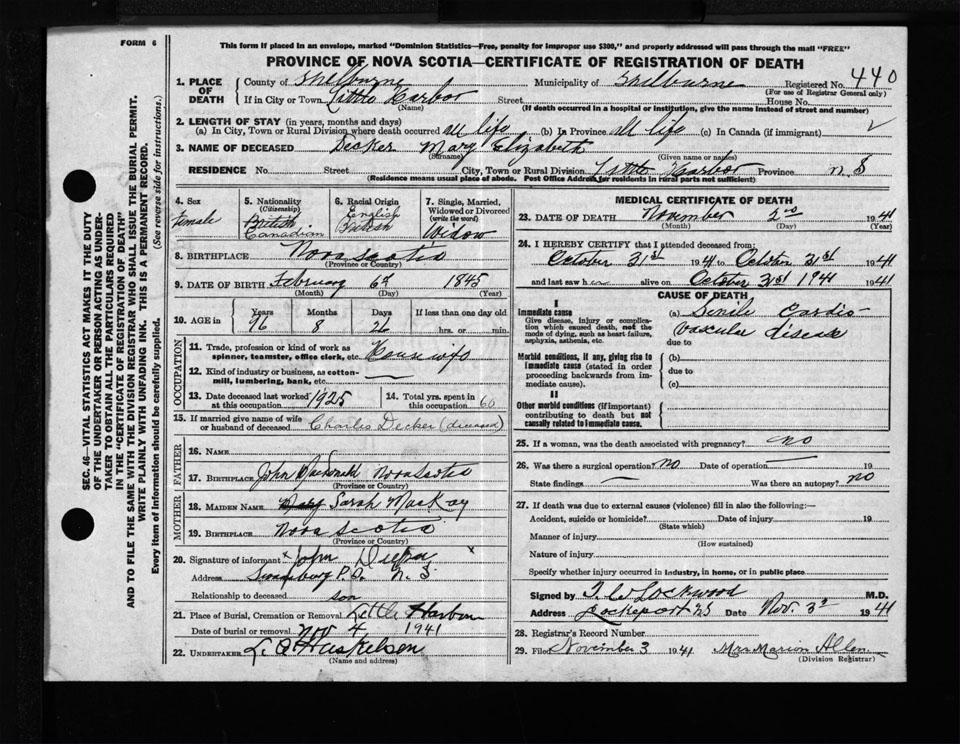 FORM 6
This form if placed in an envelope, marked "Dominion Statistics—Free, penalty for improper use $300," and properly addressed will pass through the mail "FREE"
PROVINCE OF NOVA SCOTIA—CERTIFICATE OF REGISTRATION OF DEATH
1. PLACE OF DEATH County of Shelburne Municipality of Shelburne Registered No. 440
(For use of Registrar General only)
If in City or Town Little Harbor Street House No.
(Name) (If death occurred in a hospital or institution, give the name instead of street and number)
2. LENGTH OF STAY (in years, months and days)
(a) In City, Town or Rural Division where death occurred all life (b) In Province all life (c) In Canada (if immigrant)
3. NAME OF DECEASED Decker Mary Elizabeth
(Surname) (Given name or names)
RESIDENCE No. Street City, Town or Rural Division Little Harbor Province N. S
(Residence means usual place of abode. Post Office Address for residents in rural parts not sufficient)
4. Sex Female
5. Nationality (Citizenship) British Canadian
6. Racial Origin English
7. Single, Married, Widowed or Divorced (write the word) Widow
8. BIRTHPLACE Nova Scotia
(Province or Country)
9. DATE OF BIRTH February 6 1845
(Month) (Day) (Year)
10. AGE in Years Months Days If less than one day old
96 8 26 hrs. or min.
OCCUPATION
11. Trade, profession or kind of work as spinner, teamster, office clerk, etc. House wife
12. Kind of industry or business, as cotton-mill, lumbering, bank, etc. —
13. Date deceased last worked at this occupation 1925
14. Total yrs. spent in this occupation 60
15. If married give name of wife or husband of deceased Charles Decker (deceased)
FATHER
16. NAME
17. BIRTHPLACE John MacDonald Nova Scotia
(Province or Country)
MOTHER
18. MAIDEN NAME Mary Sarah MacKay
19. BIRTHPLACE Nova Scotia
(Province or Country)
20. Signature of informant x John x
Address P.O. N. S
Relationship to deceased son
21. Place of Burial, Cremation or Removal Little Harbor
Date of burial or removal Nov 4 1941
22. UNDERTAKER
(Name and address)
MEDICAL CERTIFICATE OF DEATH
23. DATE OF DEATH November 2nd 1941
(Month) (Day) (Year)
24. I HEREBY CERTIFY that I attended deceased from:
October 31st 1941 to October 31st 1941
and last saw her alive on October 31st 1941 1941
CAUSE OF DEATH
I
Immediate cause
Give disease, injury or complication which caused death, not the mode of dying, such as heart failure, asphyxia, asthenia, etc.
(a) Senile Cardio
Vascular disease
due to
Morbid conditions, if any, giving rise to immediate cause (stated in order proceeding backwards from immediate cause).
(b)
due to
(c)
II
Other morbid conditions (if important) contributing to death but not causally related to immediate cause.
25. If a woman, was the death associated with pregnancy? no
26. Was there a surgical operation? no Date of operation — 19
State findings — Was there an autopsy? no
27. If death was due to external causes (violence) fill in also the following:—
Accident, suicide or homicide? Date of injury 19
(State which)
Manner of injury
(How sustained)
Nature of injury
Specify whether injury occurred in industry, in home, or in public place
Signed by Lockwood M.D.
Address Lockeport NS Date Nov. 3rd 1941
28. Registrar's Record Number
29. Filed November 3 1941 Mrs Marion Allen
(Division Registrar)
SEC. 46—VITAL STATISTICS ACT MAKES IT THE DUTY
OF THE UNDERTAKER OR PERSON ACTING AS UNDER-
TAKER TO OBTAIN ALL THE PARTICULARS REQUIRED
IN THE "CERTIFICATE OF REGISTRATION OF DEATH"
AND TO FILE THE SAME WITH THE DIVISION REGISTRAR WHO SHALL ISSUE THE BURIAL PERMIT.
WRITE PLAINLY WITH UNFADING INK. THIS IS A PERMANENT RECORD.
Every item of information should be carefully supplied. (See reverse side for instructions.)